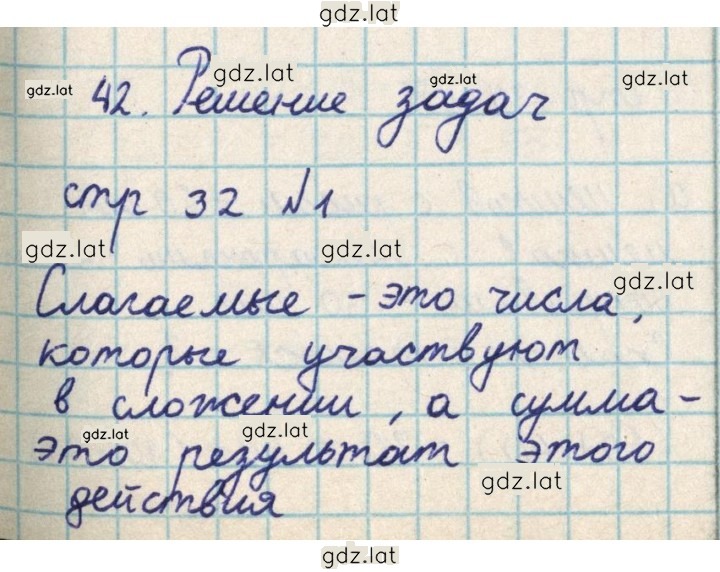 gdz.lat
gdz.lat gdz.lat gdz.lat gdz.lat
42. Решение задач
стр 32 №1
gdz.lat gdz.lat
gdz.lat
Слагаемые - это числа,
которые участвуют
в сложении, а сумма -
gdz.lat gdz.lat
это результат этого
gdz.lat
действия
gdz.lat